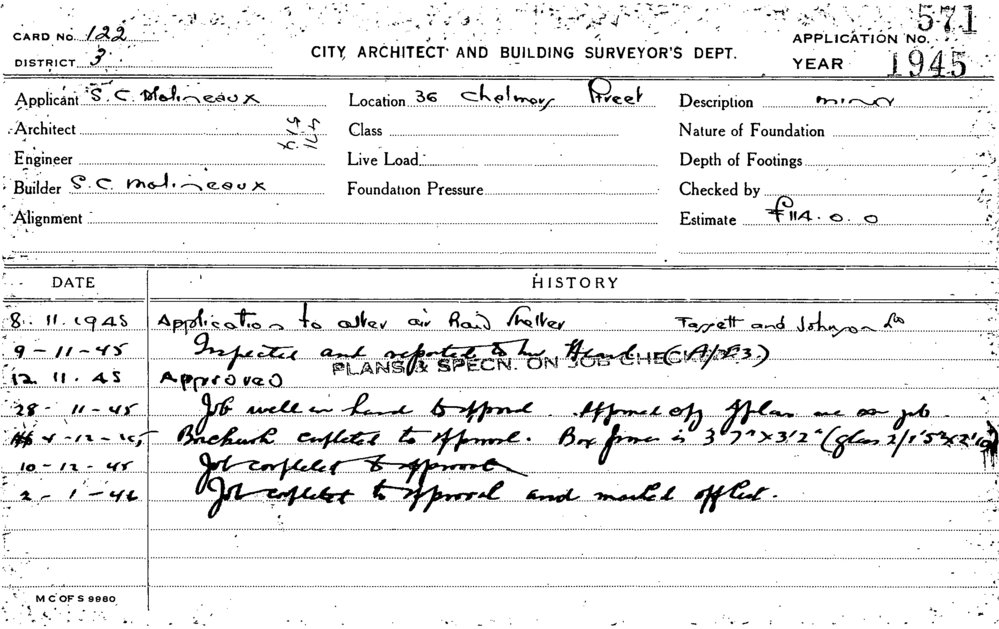 571
CARD No. 122 APPLICATION No.
DISTRICT 3 CITY ARCHITECT AND BUILDING SURVEYOR'S DEPT. YEAR 1945
Applicant S. C. Molineaux Location 36 Chalmers Street Description minor
Architect Class Nature of Foundation
Engineer Live Load Depth of Footings
Builder S. C. Molineaux Foundation Pressure Checked by
Alignment Estimate £114. 0. 0
DATE HISTORY
8. 11. 1945 Application to alter air Raid Shelter and Johnson
9-11-45 Inspected and reported to Mr
PLANS & SPECN. ON JOB CHECKED
12. 11. 45 Approved
28-11-45 Job well in hand to approval. Approved copy of plan are on job.
4-12-45 Brickwork completed to approval. Box frame is 3'7" x 3'2" (glass 2/1'5" x 2'10")
10-12-45 Job complete to approval
2-1-46 Job complete to approval and marked off list.
M C OF S 9980